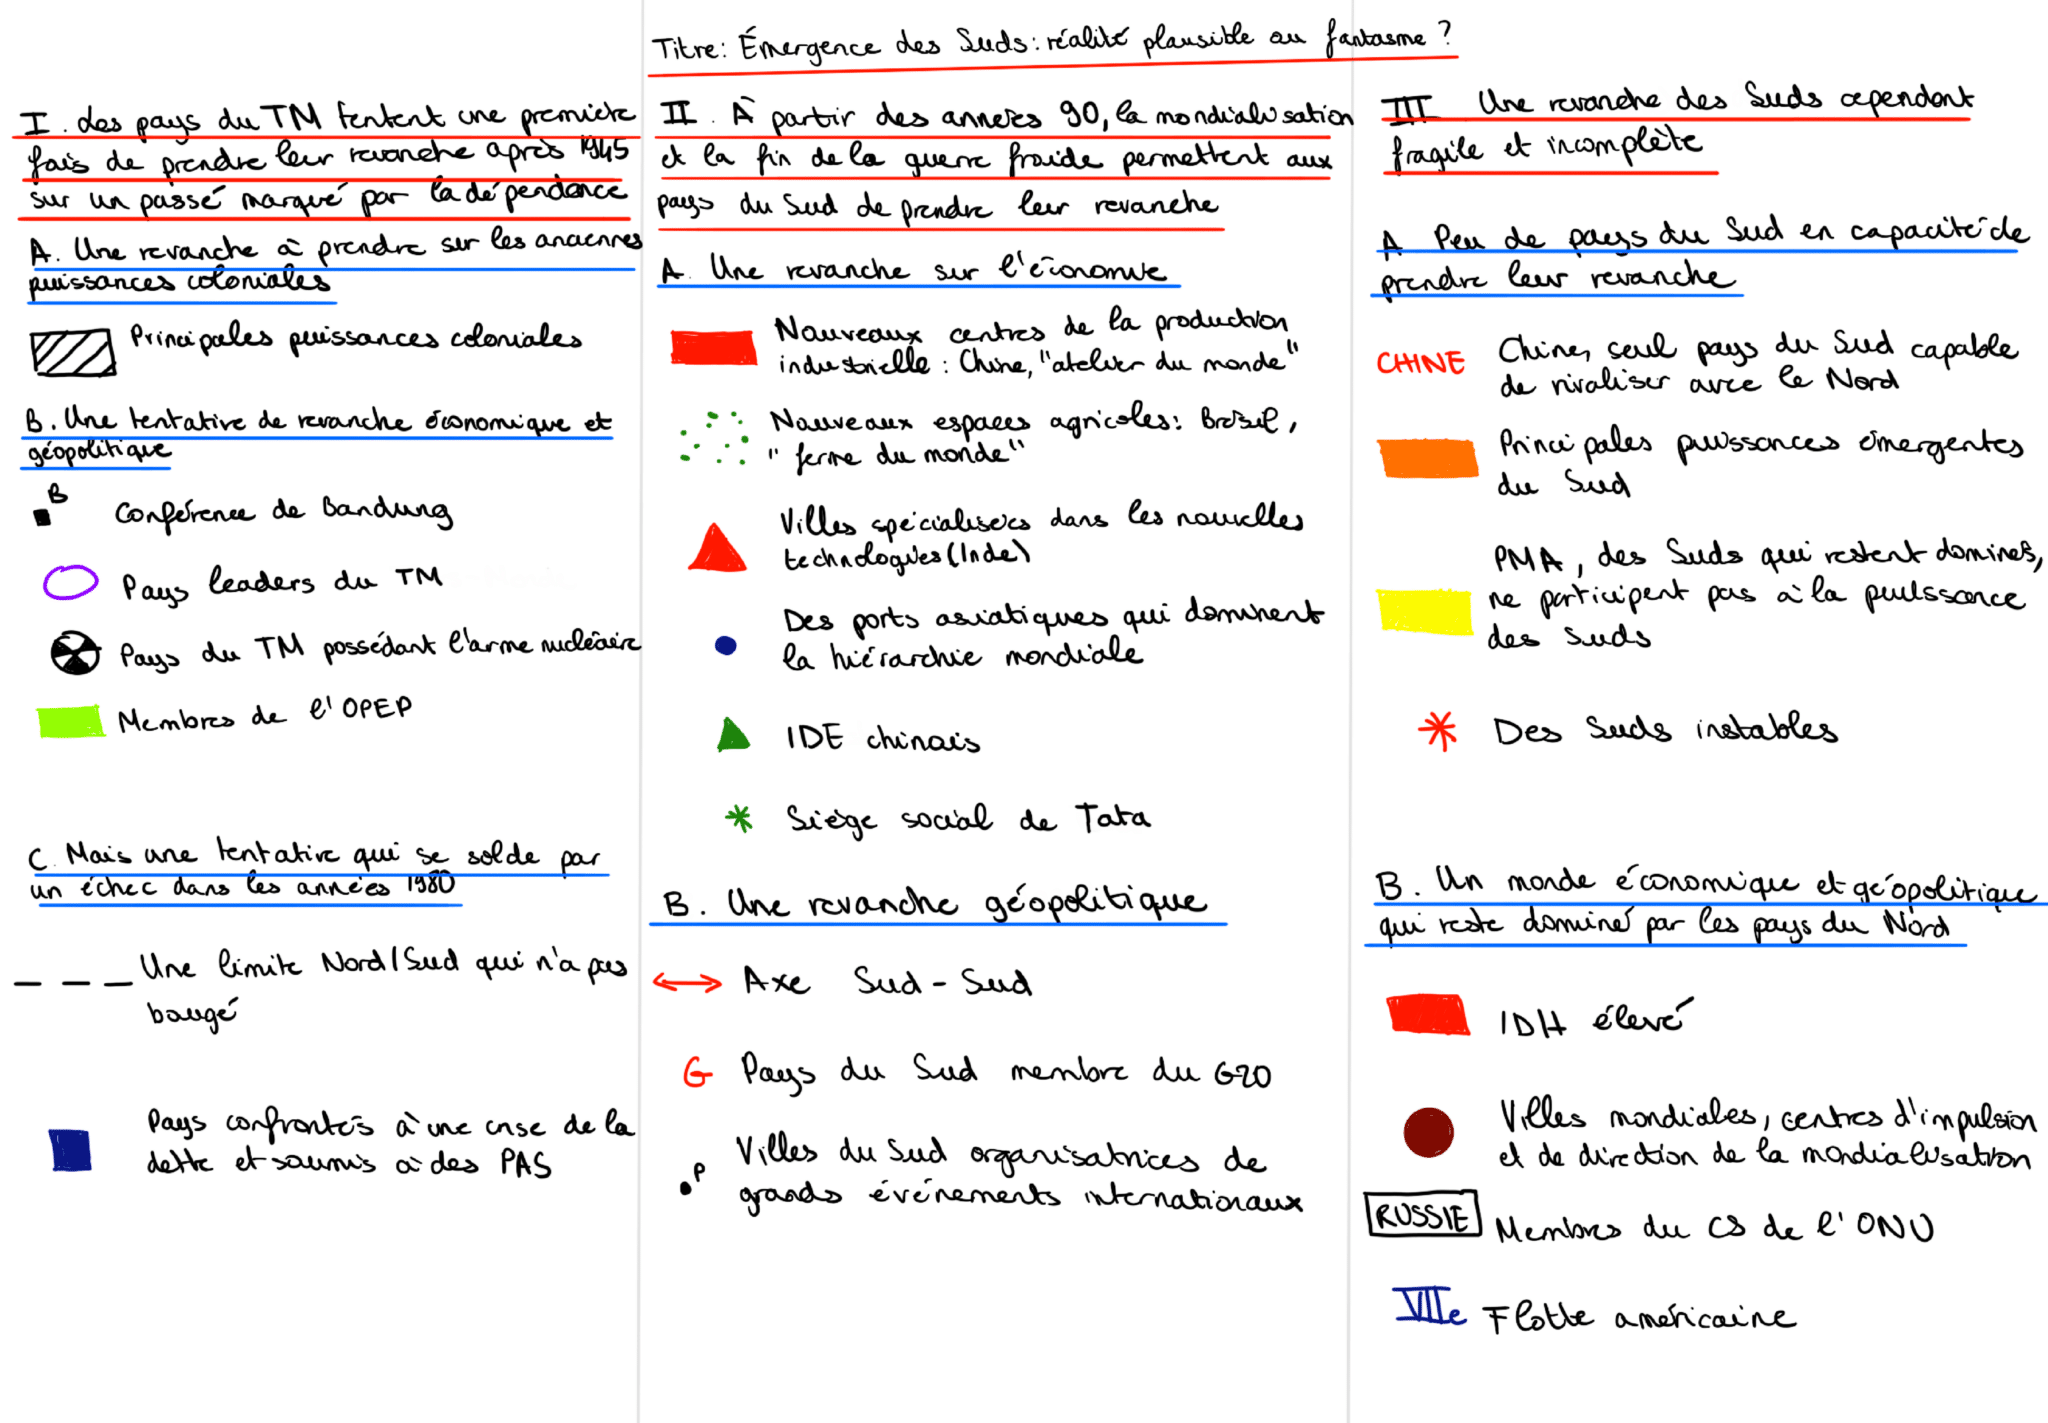 Titre: Émergence des Suds: réalité plausible ou fantasme ?
I. des pays du TM tentent une première
fois de prendre leur revanche après 1945
sur un passé marqué par la dépendance
A. Une revanche à prendre sur les anciennes
puissances coloniales
Principales puissances coloniales
B. Une tentative de revanche économique et
géopolitique
B
Conférence de Bandung
Pays leaders du TM
Pays du TM possédant l'arme nucléaire
Membres de l'OPEP
C. Mais une tentative qui se solde par
un échec dans les années 1980
Une limite Nord/Sud qui n'a pas
bougé
Pays confrontés à une crise de la
dette et soumis à des PAS
II. À partir des années 90, la mondialisation
et la fin de la guerre froide permettent aux
pays du Sud de prendre leur revanche
A. Une revanche sur l'économie
Nouveaux centres de la production
industrielle : Chine, "atelier du monde"
Nouveaux espaces agricoles: Brésil,
"ferme du monde"
Villes spécialisées dans les nouvelles
technologies (Inde)
Des ports asiatiques qui dominent
la hiérarchie mondiale
IDE chinois
Siège social de Tata
B. Une revanche géopolitique
Axe Sud-Sud
G Pays du Sud membre du G20
P
Villes du Sud organisatrices de
grands événements internationaux
III Une revanche des Suds cependant
fragile et incomplète
A Peu de pays du Sud en capacité de
prendre leur revanche
CHINE Chine, seul pays du Sud capable
de rivaliser avec le Nord
Principales puissances émergentes
du Sud
PMA, des Suds qui restent dominés,
ne participent pas à la puissance
des Suds
Des Suds instables
B. Un monde économique et géopolitique
qui reste dominé par les pays du Nord
IDH élevé
Villes mondiales, centres d'impulsion
et de direction de la mondialisation
RUSSIE Membres du CS de l'ONU
VIIe Flotte américaine